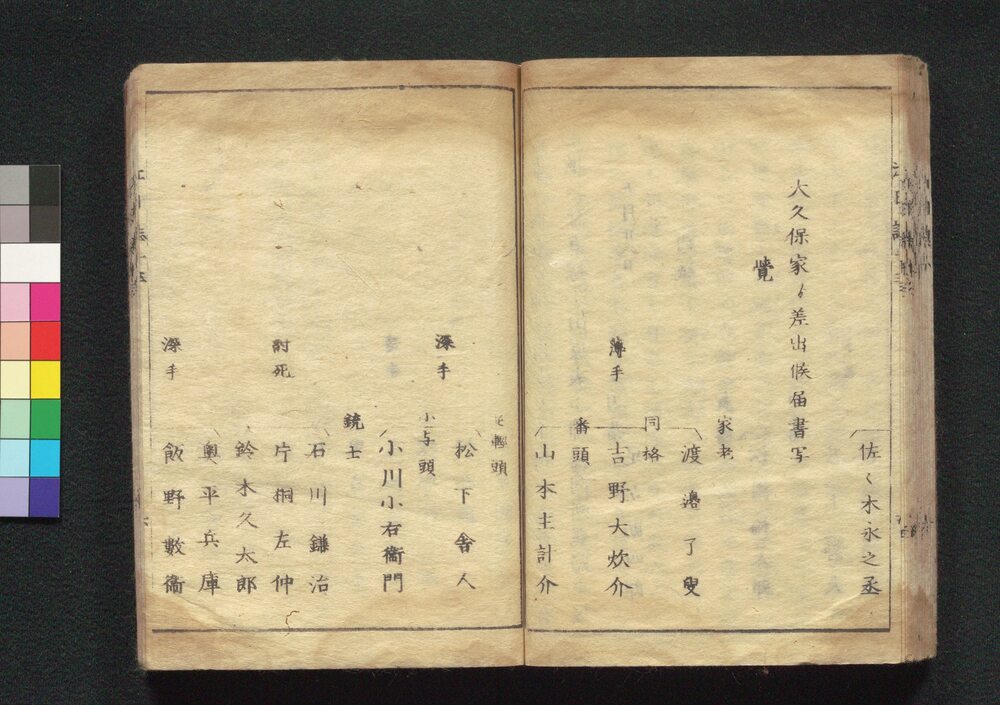 佐々木永之丞
大久保家ゟ差出候届書写
覚
家老
渡邉了叟
同格
薄手
吉野大炊介
番頭
山本主計介
輕頭
松下舎人
深手
小与頭
小川小右衞門
銃士
石川鎌治
討死
片桐左仲
鈴木久太郎
奥平兵庫
深手
飯野數衞